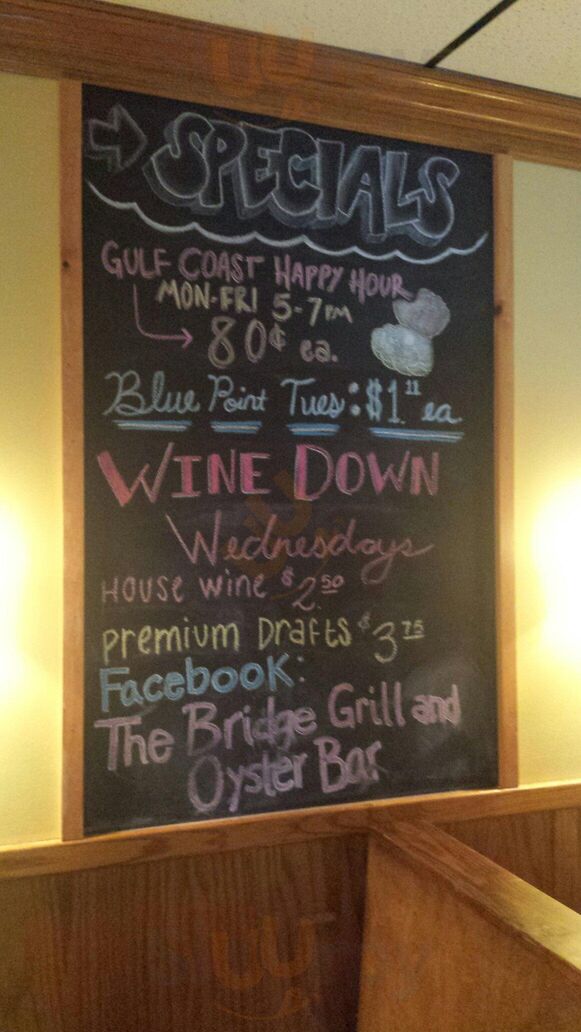 SPECIALS
GULF COAST HAPPY HOUR
MON-FRI 5-7PM
80¢ ea.
Blue Point Tues: $1.11 ea
WINE DOWN
Wednesdays
HOUSE WINE $2.50
PREMIUM DRAFTS $3.75
Facebook:
The Bridge Grill and
Oyster Bar